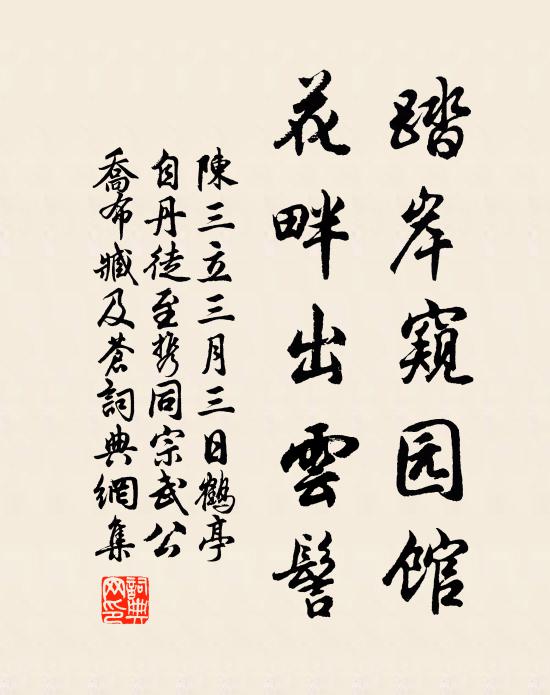 踏岸窺园馆
花畔出雲髻
陳三立三月三日鶴亭
自丹徒至携同宗武公
喬布臧及蒼詞典網集
詞典網印